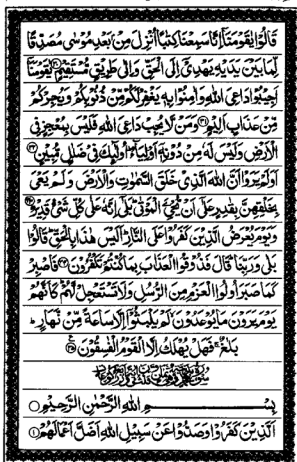 قَالُوْا يٰقَوْمَنَآ اِنَّا سَمِعْنَا كِتٰبًا اُنْزِلَ مِنْۢ بَعْدِ مُوْسٰى مُصَدِّقًا
لِّمَا بَيْنَ يَدَيْهِ يَهْدِيْٓ اِلَى الْحَقِّ وَاِلٰى طَرِيْقٍ مُّسْتَقِيْمٍ ﴿۳۰﴾ يٰقَوْمَنَآ
اَجِيْبُوْا دَاعِيَ اللّٰهِ وَاٰمِنُوْا بِهٖ يَغْفِرْ لَكُمْ مِّنْ ذُنُوْبِكُمْ وَيُجِرْكُمْ
مِّنْ عَذَابٍ اَلِيْمٍ ﴿۳۱﴾ وَمَنْ لَّا يُجِبْ دَاعِيَ اللّٰهِ فَلَيْسَ بِمُعْجِزٍ فِي
الْاَرْضِ وَلَيْسَ لَهٗ مِنْ دُوْنِهٖٓ اَوْلِيَآءُ ؕ اُولٰٓئِكَ فِيْ ضَلٰلٍ مُّبِيْنٍ ﴿۳۲﴾
اَوَلَمْ يَرَوْا اَنَّ اللّٰهَ الَّذِيْ خَلَقَ السَّمٰوٰتِ وَالْاَرْضَ وَلَمْ يَعْيَ
بِخَلْقِهِنَّ بِقٰدِرٍ عَلٰٓى اَنْ يُّحْيِۦَ الْمَوْتٰى ؕ بَلٰٓى اِنَّهٗ عَلٰى كُلِّ شَيْءٍ قَدِيْرٌ ﴿۳۳﴾
وَيَوْمَ يُعْرَضُ الَّذِيْنَ كَفَرُوْا عَلَى النَّارِ ؕ اَلَيْسَ هٰذَا بِالْحَقِّ ؕ قَالُوْا
بَلٰى وَرَبِّنَا ؕ قَالَ فَذُوْقُوا الْعَذَابَ بِمَا كُنْتُمْ تَكْفُرُوْنَ ﴿۳۴﴾ فَاصْبِرْ
كَمَا صَبَرَ اُولُوا الْعَزْمِ مِنَ الرُّسُلِ وَلَا تَسْتَعْجِلْ لَّهُمْ ؕ كَاَنَّهُمْ
يَوْمَ يَرَوْنَ مَا يُوْعَدُوْنَ ۙ لَمْ يَلْبَثُوْٓا اِلَّا سَاعَةً مِّنْ نَّهَارٍ ؕ
بَلٰغٌ ۚ فَهَلْ يُهْلَكُ اِلَّا الْقَوْمُ الْفٰسِقُوْنَ ﴿۳۵﴾
بِسْمِ اللّٰهِ الرَّحْمٰنِ الرَّحِيْمِ
اَلَّذِيْنَ كَفَرُوْا وَصَدُّوْا عَنْ سَبِيْلِ اللّٰهِ اَضَلَّ اَعْمَالَهُمْ ﴿۱﴾